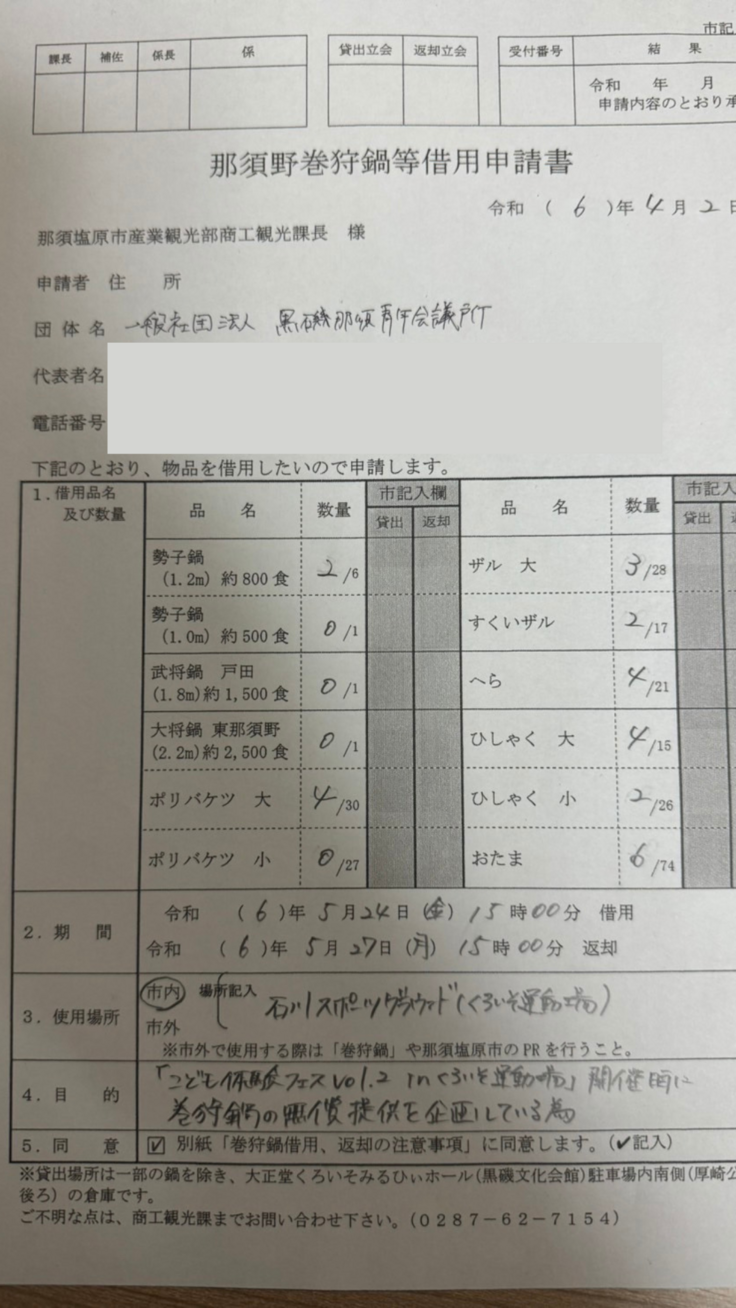 市記
課長 補佐 係長 係 貸出立会 返却立会 受付番号 結果
令和 年 月
申請内容のとおり承
那須野巻狩鍋等借用申請書
令和 (6)年4月2日
那須塩原市産業観光部商工観光課長 様
申請者 住 所
団体名 一般社団法人 黒磯那須青年会議所
代表者名
電話番号
下記のとおり、物品を借用したいので申請します。
1.借用品名及び数量
品名 数量 市記入欄 品名 数量 市記入
貸出 返却 貸出
勢子鍋 (1.2m) 約800食 2/6 ザル 大 3/28
勢子鍋 (1.0m) 約500食 0/1 すくいザル 2/17
武将鍋 戸田 (1.8m)約1,500食 0/1 へら 4/21
大将鍋 東那須野 (2.2m)約2,500食 0/1 ひしゃく 大 4/15
ポリバケツ 大 4/30 ひしゃく 小 2/26
ポリバケツ 小 0/27 おたま 6/74
2.期 間 令和 (6)年5月24日(金)15時00分 借用
令和 (6)年5月27日(月)15時00分 返却
3.使用場所 市内 場所記入 石川スポーツグラウンド(くろいそ運動場)
市外
※市外で使用する際は「巻狩鍋」や那須塩原市のPRを行うこと。
4.目 的 「こども体験フェスvol.2 inくろいそ運動場」開催時に
巻狩鍋の無償提供を企画している為
5.同 意 ☑ 別紙「巻狩鍋借用、返却の注意事項」に同意します。(✔記入)
※貸出場所は一部の鍋を除き、大正堂くろいそみるひぃホール(黒磯文化会館)駐車場内南側(厚崎公
後ろ)の倉庫です。
ご不明な点は、商工観光課までお問い合わせ下さい。(0287-62-7154)